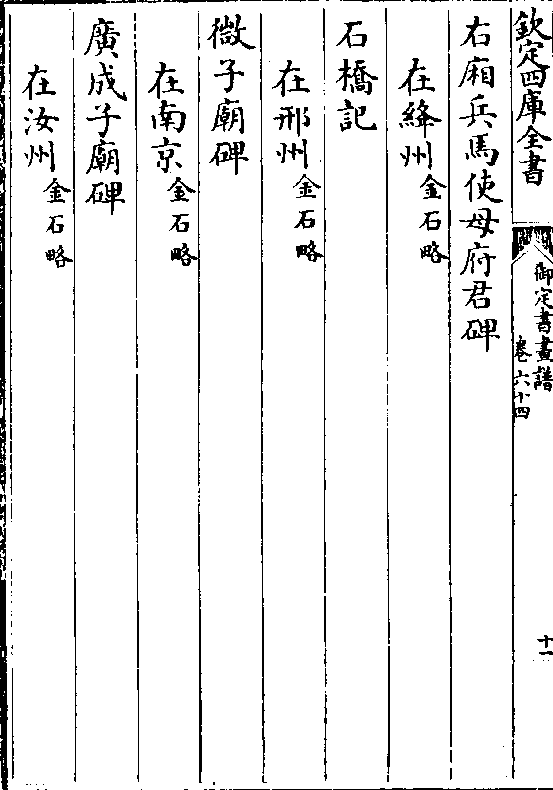 欽定四庫全書
御定書畫譜
卷六十四
十一
右廂兵馬使母府君碑
在絳州金石略
石橋記
在邢州金石略
微子廟碑
在南京金石略
廣成子廟碑
在汝州金石略